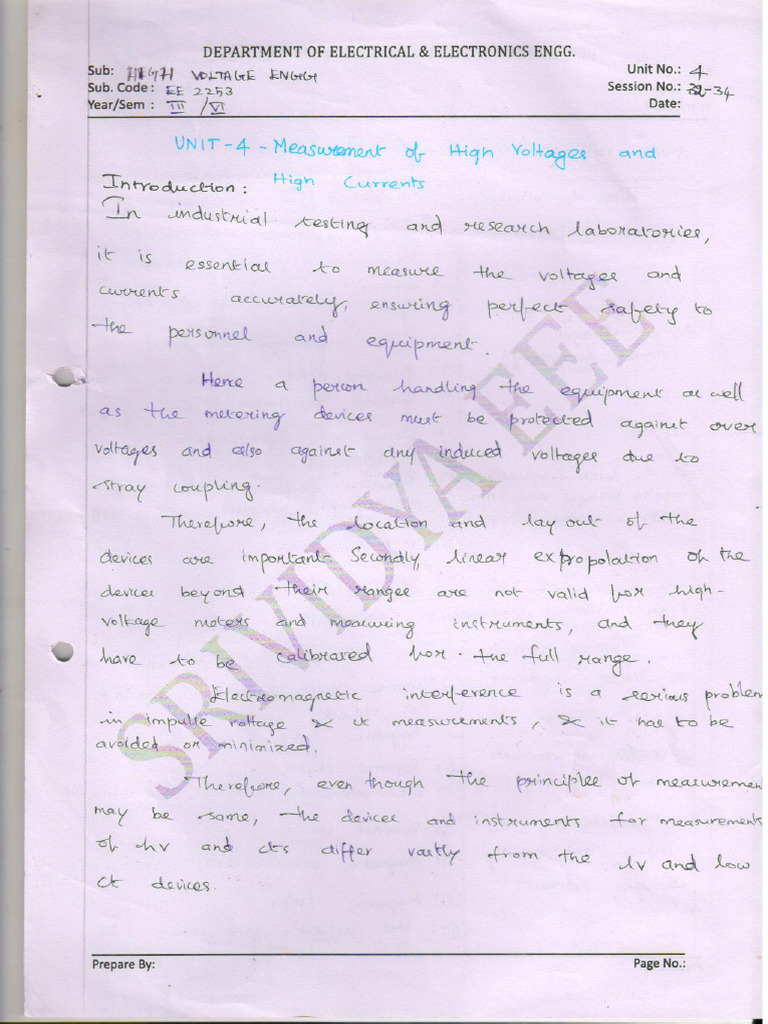 DEPARTMENT OF ELECTRICAL & ELECTRONICS ENGG.
Sub: HIGH VOLTAGE ENGG Unit No.: 4
Sub. Code: EE 2253 Session No.: 32-34
Year/Sem : III / VI Date:
UNIT-4 - Measurement of High Voltages and
High Currents
Introduction:
In industrial testing and research laboratories,
it is essential to measure the voltages and
currents accurately, ensuring perfect safety to
the personnel and equipment.
Hence a person handling the equipment as well
as the metering devices must be protected against over
voltages and also against any induced voltages due to
stray coupling.
Therefore, the location and lay out of the
devices are important. Secondly, linear extropolation of the
devices beyond their ranges are not valid for high-
voltage meters and measuring instruments, and they
have to be calibrated for. the full range.
Electromagnetic interference is a serious problem
in impulse voltage & ct measurements, & it has to be
avoided or minimized.
Therefore, even though the principles of measurement
may be same, the devices and instruments for measurements
of hv and cts differ vastly from the lv and low
ct devices.
SRIVIDYA EEE
Prepare By: Page No.: